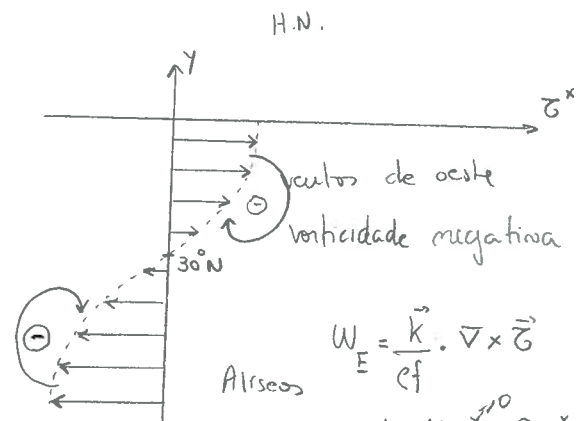 H.N.
y
τˣ
ventos de oeste
⊖
vorticidade negativa
30°N
⊖
W_E = k⃗/ρf · ∇ × τ⃗
Alíseos